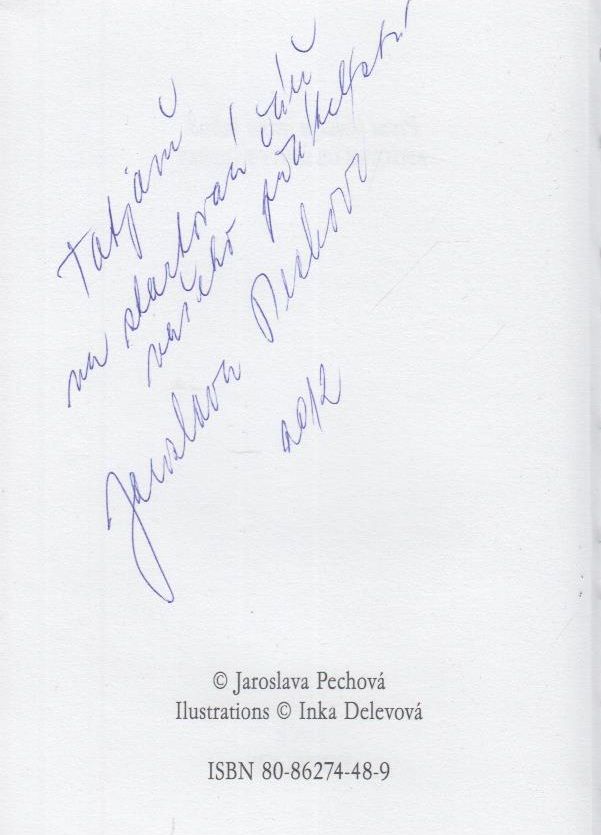 Taťjáně
na startovací čáru
vašeho přátelství
Jaroslava Pechová
2012
© Jaroslava Pechová
Ilustrations © Inka Delevová
ISBN 80-86274-48-9